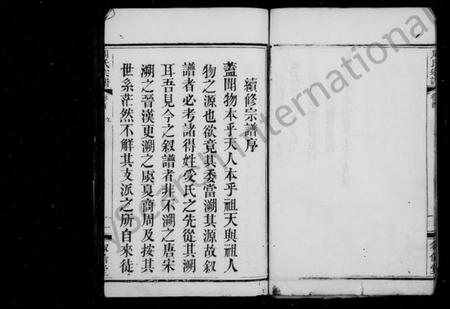 續修宗譜序
蓋聞物本乎天人本乎祖天與祖人
物之源也欲竟其委當溯其源故叙
譜者必考諸得姓受氏之先從其溯
耳吾見今之叙譜者非不溯之唐宋
溯之晉漢更溯之虞夏商周及按其
世系茫然不解其支派之所自來徒